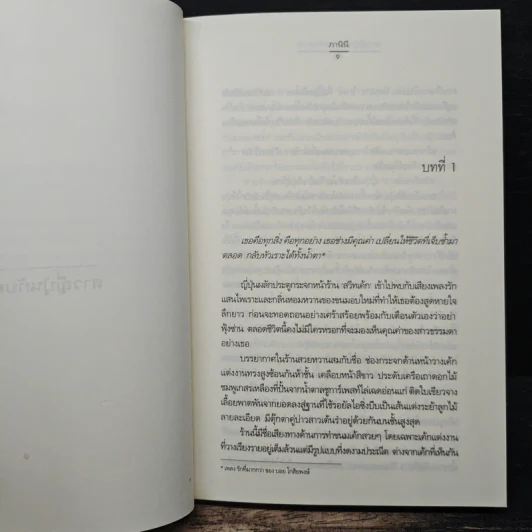 ภานินี
๑
บทที่ 1
เธอคือทุกสิ่ง คือทุกอย่าง เธอช่างมีคุณค่า เปลี่ยนให้ชีวิตที่เจ็บช้ำมา
ตลอด กลับหัวเราะได้ทั้งน้ำตา*
ญี่ปุ่นผลักประตูกระจกหน้าร้าน ‘สวีทเค้ก’ เข้าไปพบกับเสียงเพลงรัก
แสนไพเราะและกลิ่นหอมหวานของขนมอบใหม่ที่ทำให้เธอต้องสูดหายใจ
ลึกยาว ก่อนจะทอดถอนอย่างเศร้าสร้อยพร้อมกับเตือนตัวเองว่าอย่า
ฟุ้งซ่าน ตลอดชีวิตนี้คงไม่มีใครหรอกที่จะมองเห็นคุณค่าของสาวธรรมดา
อย่างเธอ
บรรยากาศในร้านสวยหวานสมกับชื่อ ช่องกระจกด้านหน้าวางเค้ก
แต่งงานทรงสูงซ้อนกันห้าชั้น เคลือบหน้าสีขาว ประดับเครือเถาดอกไม้
ชมพูเกสรเหลืองที่ปั้นจากน้ำตาลซูการ์เพสท์ไล่เฉดอ่อนแก่ ติดใบเขียวจาง
เลื้อยพาดพันจากยอดลงสู่ฐานที่ใช้รอยัลไอซิงบีบเป็นเส้นแต่งระย้าลูกไม้
ลายละเอียด มีตุ๊กตาคู่บ่าวสาวเต้นรำอยู่ด้วยกันบนชั้นสูงสุด
ร้านนี้มีชื่อเสียงทางด้านการทำขนมเค้กสวยๆ โดยเฉพาะเค้กแต่งงาน
ที่วางเรียงรายอยู่เต็มล้วนแต่มีรูปแบบที่งดงามประณีต ต่างจากเค้กที่เห็นกัน
* เพลง รักที่มากกว่า ของ บอย โกสิยพงษ์